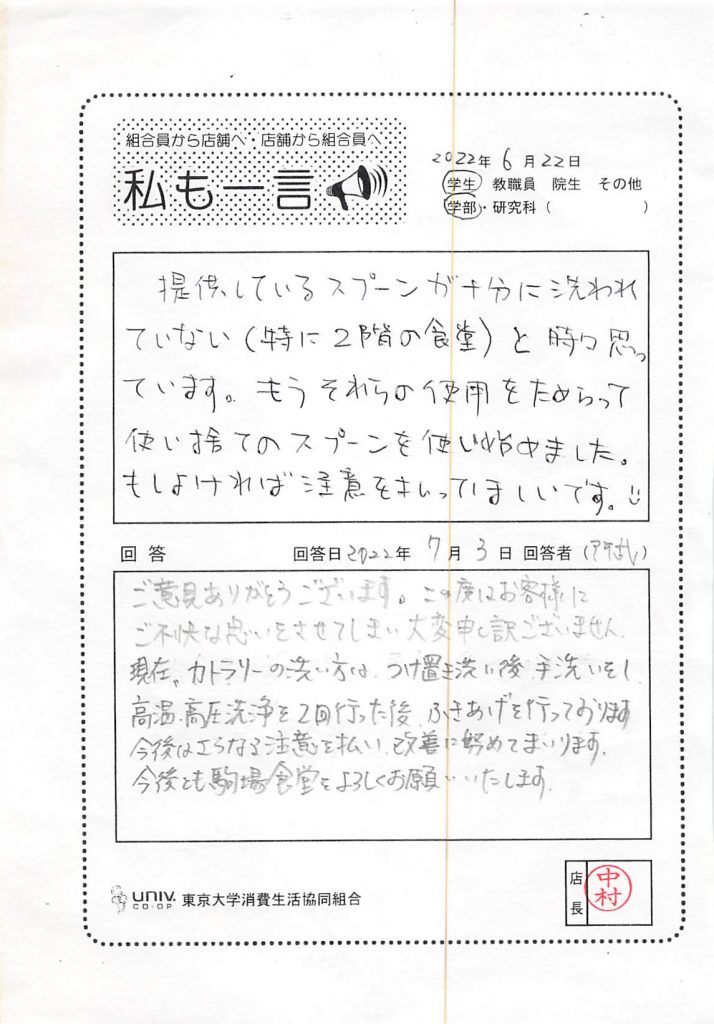 組合員から店舗へ・店舗から組合員へ
私も一言
2022年 6月22日
学生 教職員 院生 その他
学部・研究科（ ）
提供しているスプーンが十分に洗われ
ていない（特に2階の食堂）と時々思っ
ています。もうそれらの使用をためらって
使い捨てのスプーンを使い始めました。
もしよければ注意をはらってほしいです。
回答 回答日2022年 7月3日 回答者（ ）
ご意見ありがとうございます。この度はお客様に
ご不快な思いをさせてしまい大変申し訳ございません。
現在、カトラリーの洗い方は、つけ置き洗い後、手洗いをし
高温、高圧洗浄を2回行った後、ふきあげを行っております
今後はさらなる注意を払い、改善に努めてまいります。
今後とも駒場食堂をよろしくお願いいたします。
UNIV.
CO-OP
東京大学消費生活協同組合
店長
中村